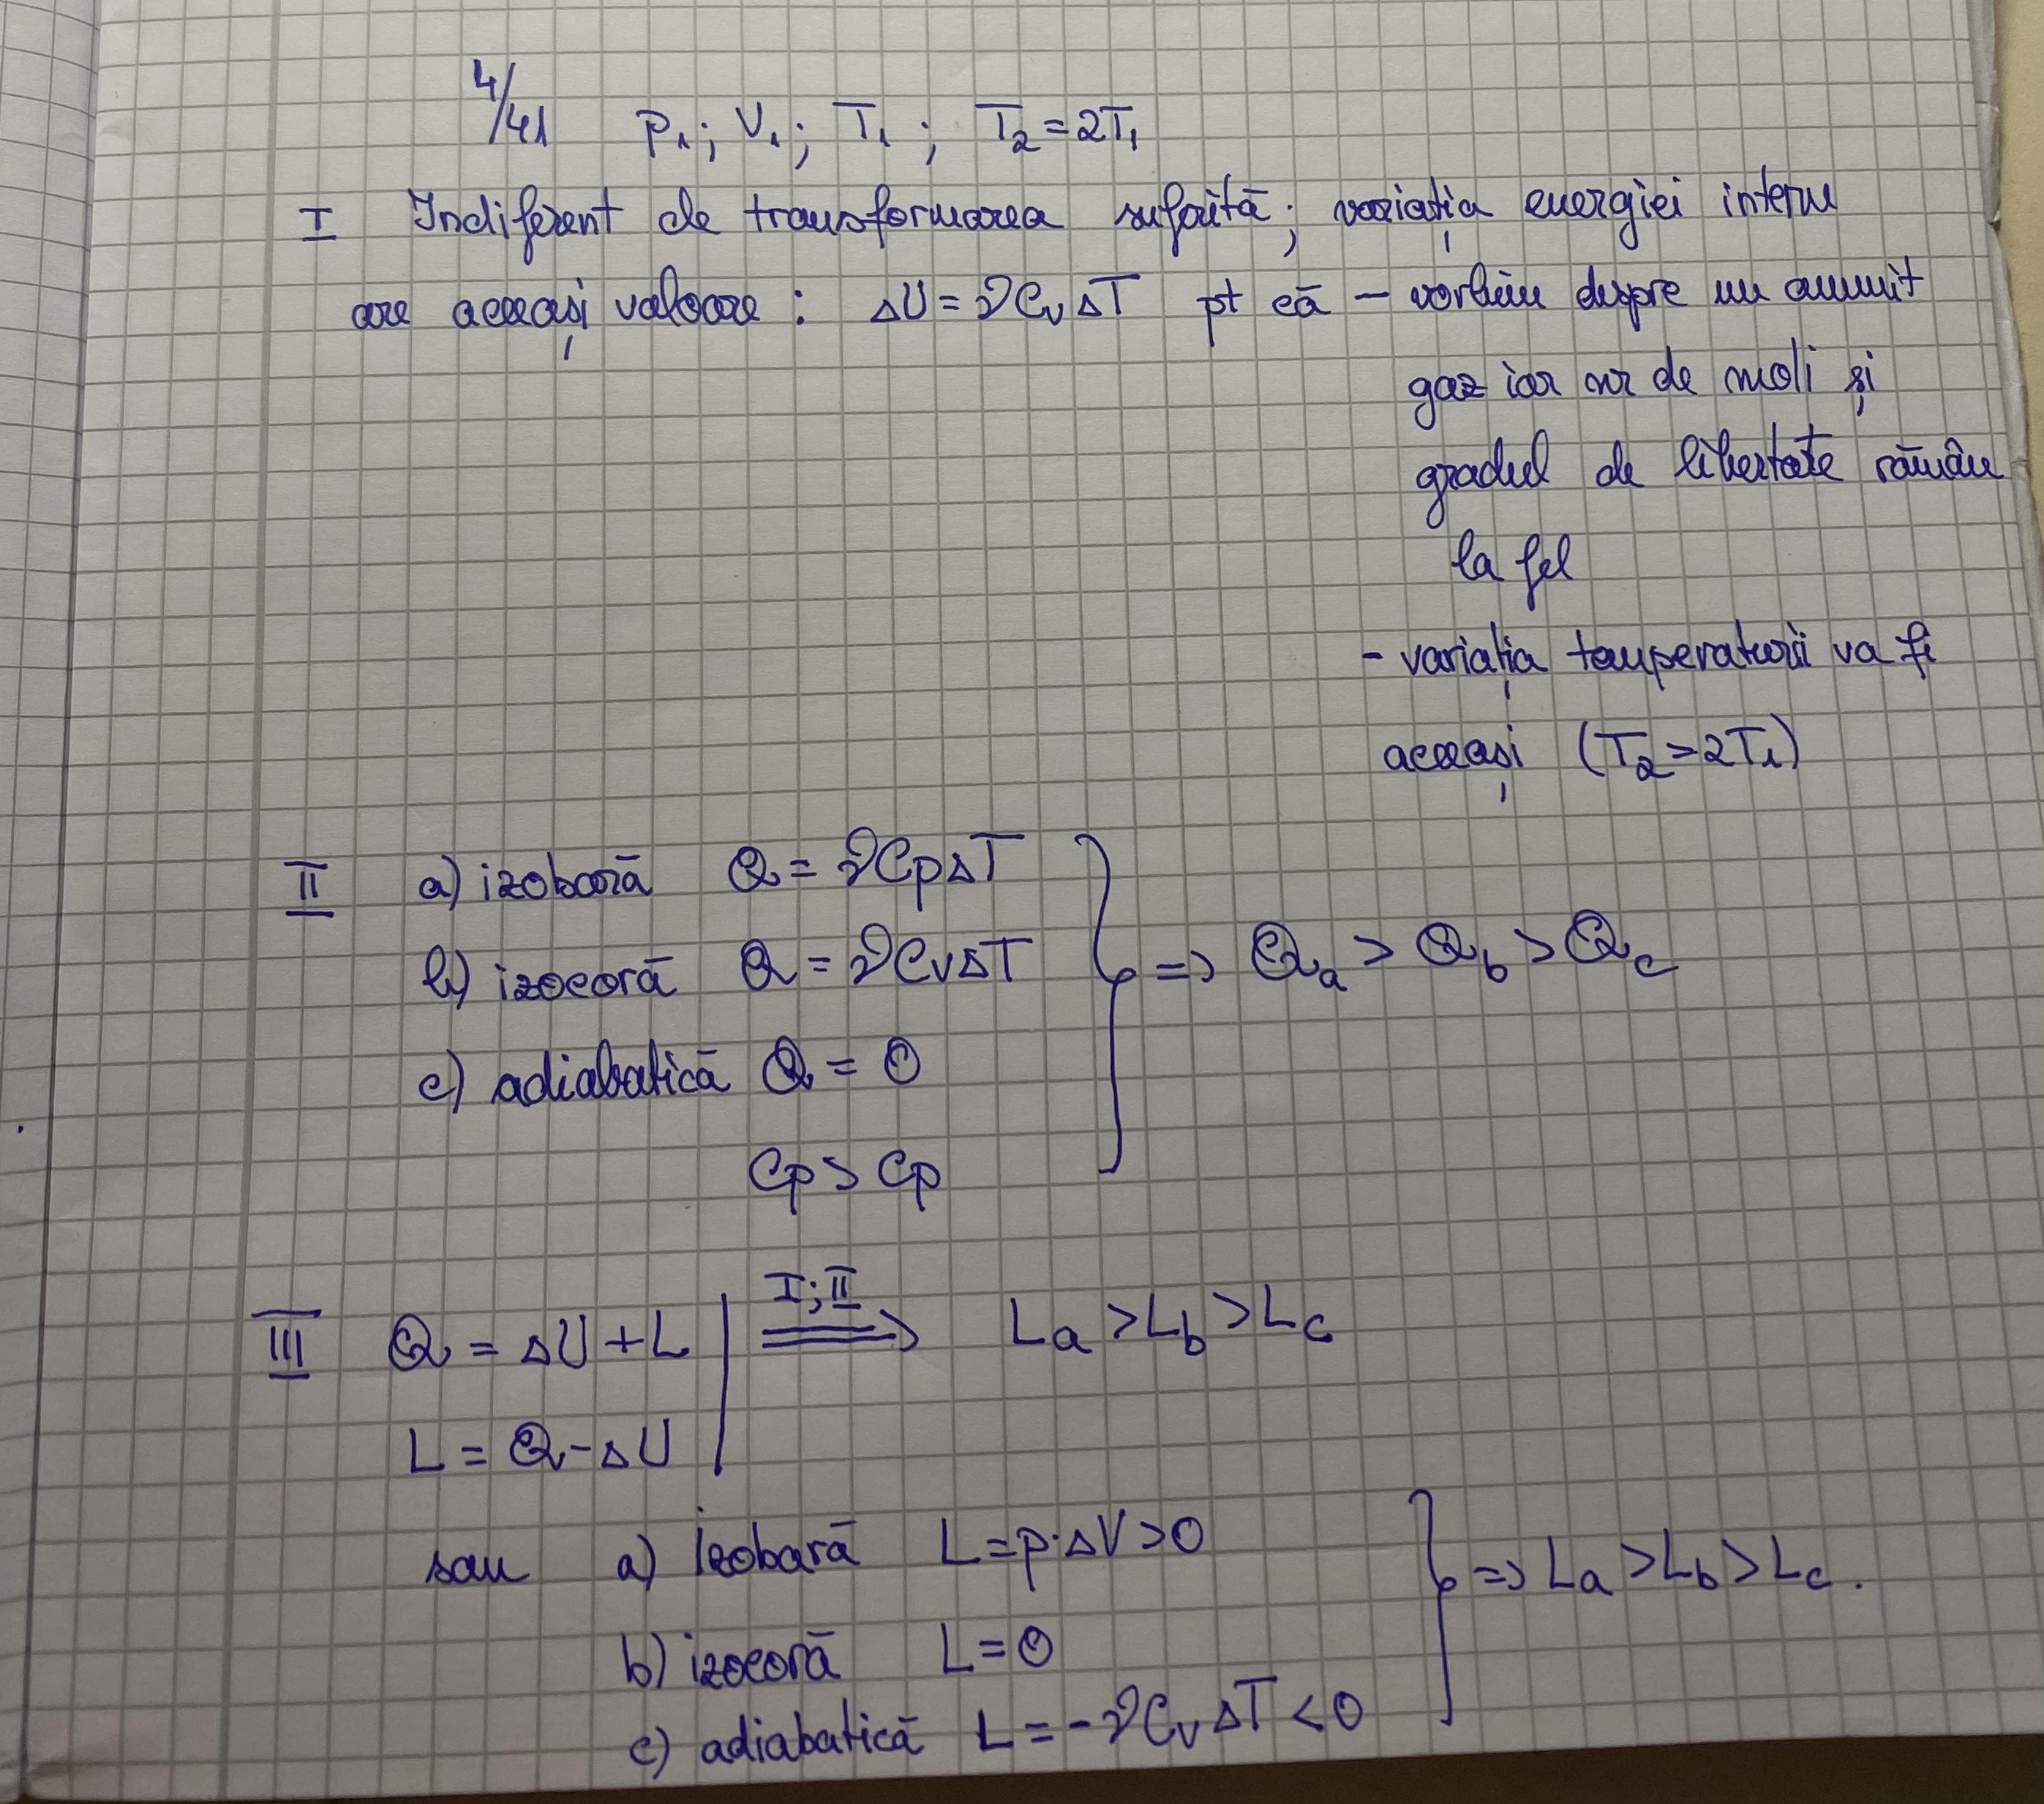 4/41 p₁; V₁; T₁; T₂=2T₁
I Indiferent de transformarea suferită; variația energiei interne
are aceeași valoare: ΔU = νCvΔT pt că – vorbim despre un anumit
gaz iar nr de moli și
gradul de libertate rămân
la fel
- variația temperaturii va fi
aceeași (T₂=2T₁)
II a) izobară Q = νCpΔT
b) izocoră Q = νCvΔT => Qa > Qb > Qc
c) adiabatică Q = 0
Cp > Cp
III Q = ΔU + L I;II => La > Lb > Lc
L = Q - ΔU
sau a) izobară L = p·ΔV > 0
=> La > Lb > Lc.
b) izocoră L = 0
c) adiabatică L = -νCvΔT < 0